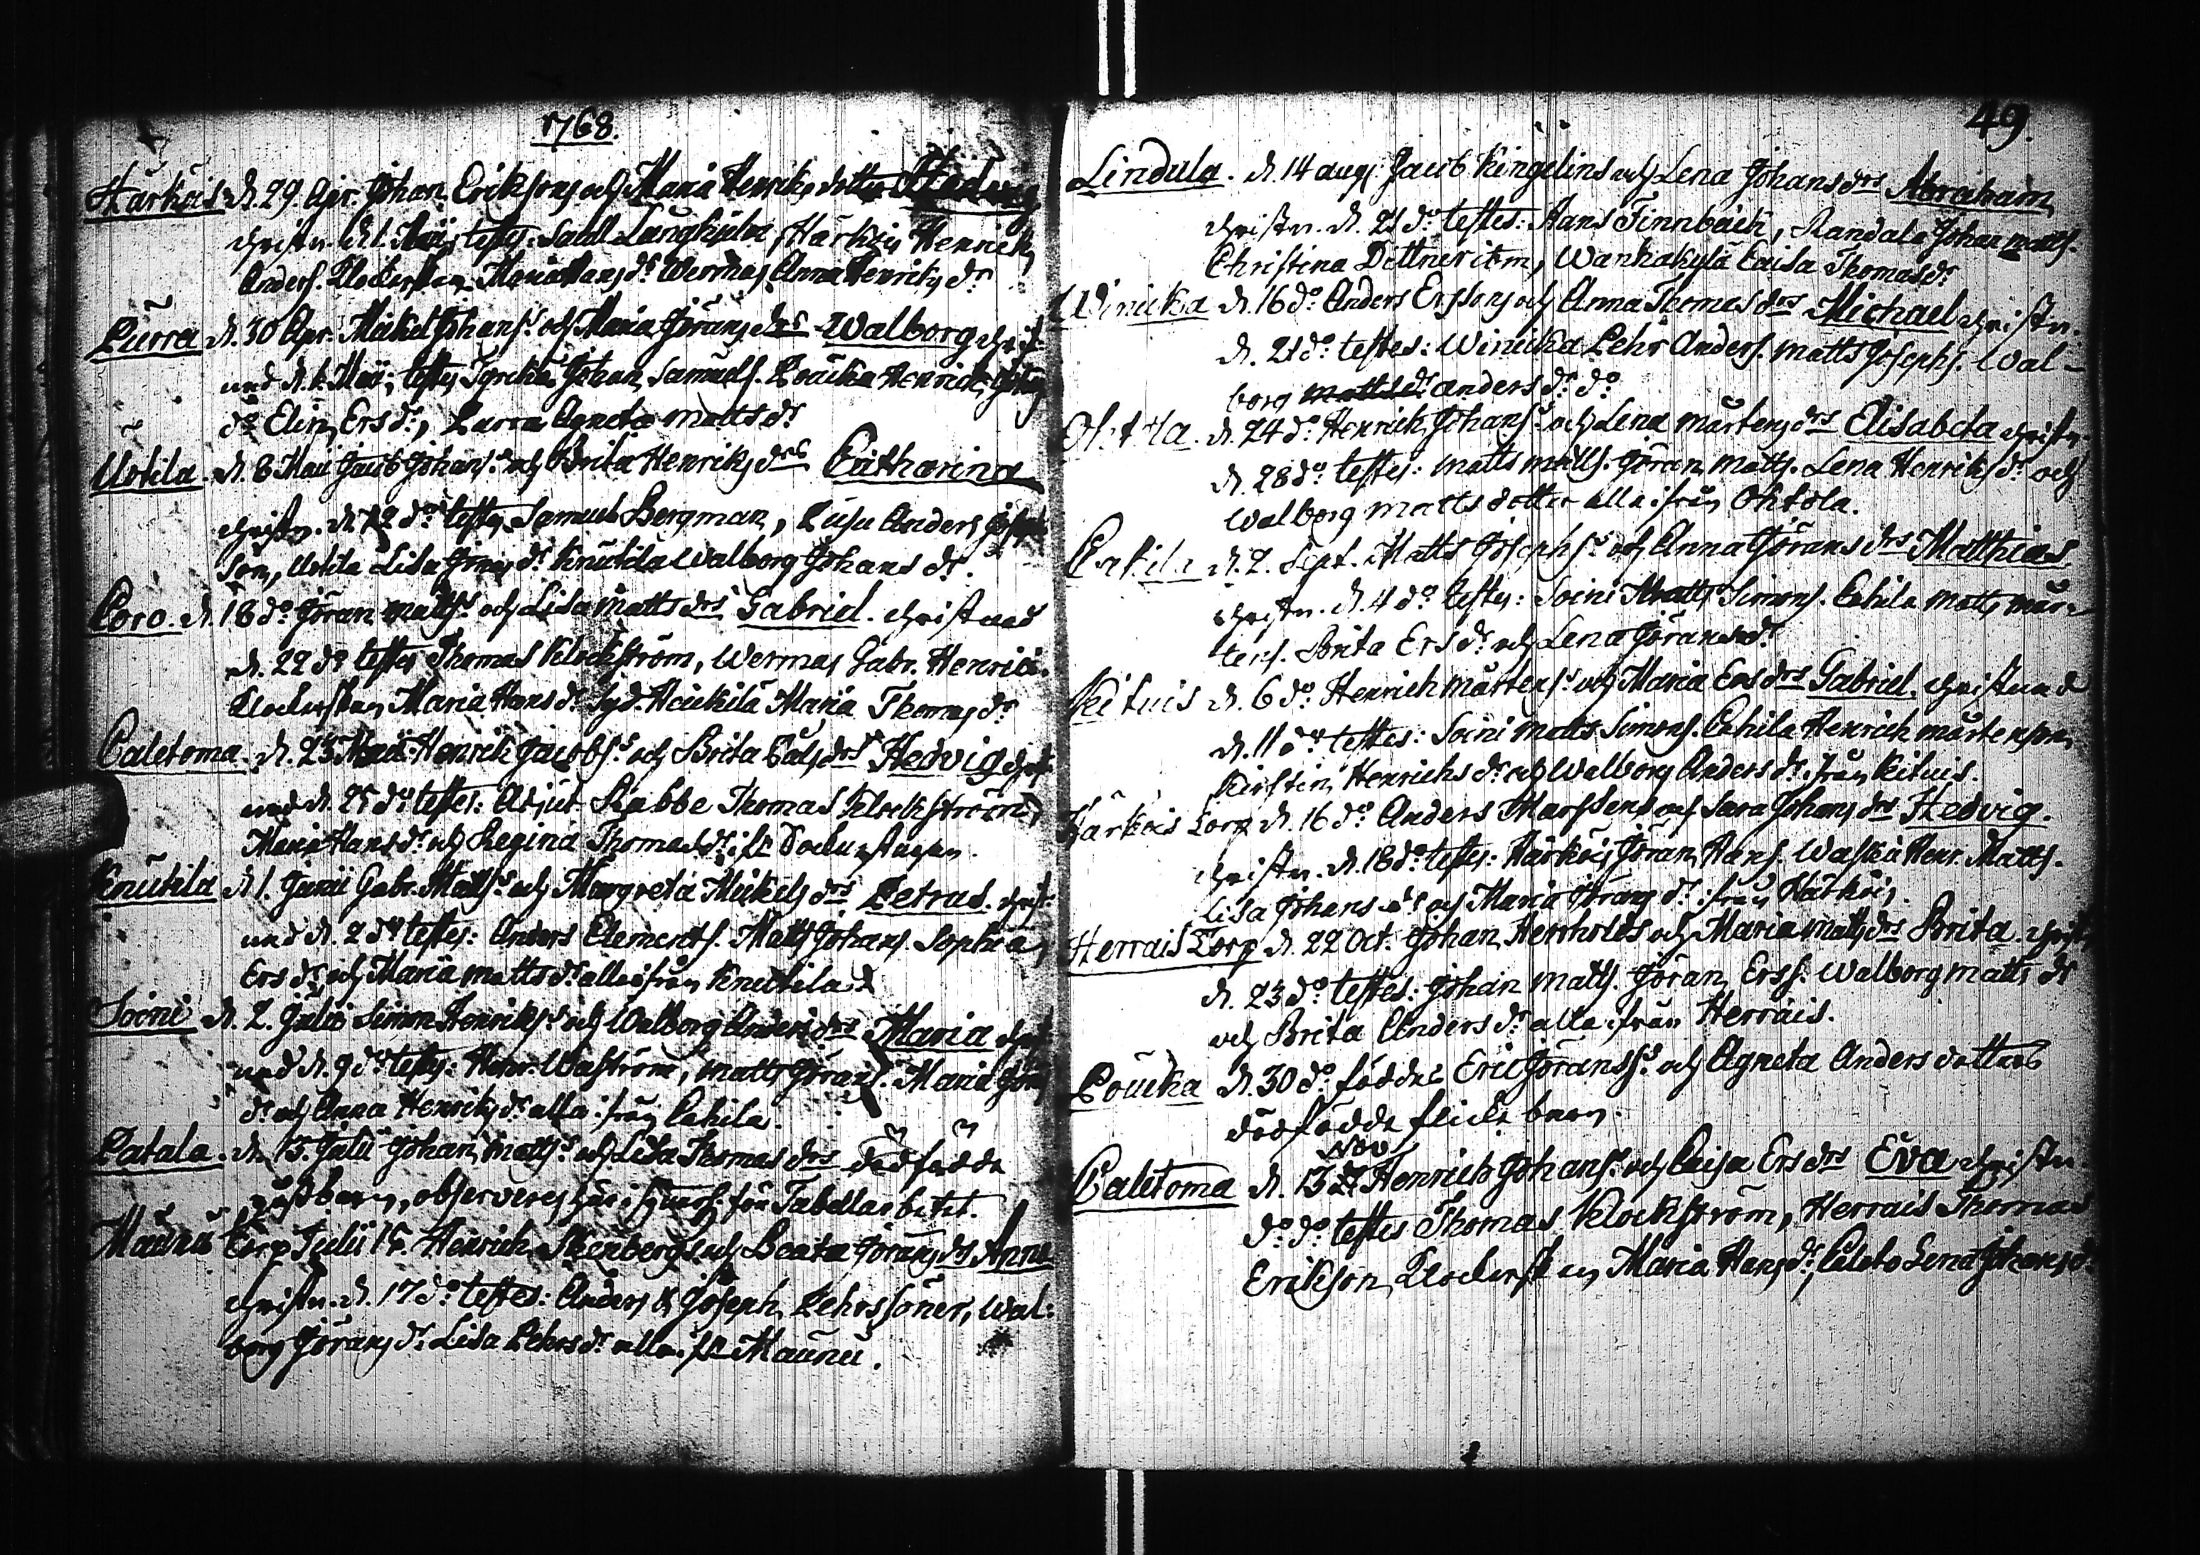 1768.
Härkäis d. 29. Apr. Johan Eriksons och Maria Henriks dotters Hedvig
christn. d. 1. Maij testes: Härkäis Henrich
Anders. Maria Hans dr Wermas Anna Henriks dr
Purra d. 30 Apr. Mickel Johans:s och Maria Görans drs Walborg christ-
nad d. 1. Maij, testes Johan Samuels. Poucka Henrich
do Elin Ers dr, Purra Agneta Matts dr
Uotila. d. 8 Maii Jacob Johans:s och Brita Henriks drs Catharina
christn. d. 12 do testes Samuel Bergman, Anders
son, Uotila Lisa Görans dr Knutila Walborg Johans dr.
Poro. d. 18 do Göran Matts:s och Lisa Matts drs Gabriel. christnad
d. 22 do testes Thomas Klockström, Wermas Gabr. Henrics.
Maria Hans dr Maria Thomas dr
Caletoma. d. 23 Maii Henrik Jacobs:s och Brita drs Hedvig christ
nad d. 25 do testes: Adjut. Rabbe Thomas Klockström,
Maria Hans dr och Regina Thomas dr
Knutila d. 1. Junii Gabr. Matts:s och Margreta Mickels drs Petrus. christ-
nad d. 2 do testes: Anders Clements. Matts Johans. Sophia
Ers dr och Maria Matts dr alla ifrån Knutila
Soini d. 2. Julii Simon Henriks:s och Walborg Anders drs Maria christ
nad d. 9 do testes: Henr. Waström, Matts Görans. Maria Görans
dr och Anna Henriks dr alla ifrån Cahila.
Patala. d. 13. Julii Johan Matts:s och Lisa Thomas drs dödfödde
barn, observeras för Tabellarbetet.
Maunu Torp Julii 15. Henrich Stenbergs och Beata Görans drs Anna
christn. d. 17 do testes: Anders & Joseph Pehrssöner, Wal-
borg Görans dr Lisa Pehrs dr alla ifr. Maunu.
49.
Lindula. d. 14 aug. Jacob Kingelins och Lena Johans drs Abraham
christn. d. 21 do testes: Hans Finnbäck, Randala Johan Matts.
Christina Dittneritem, Wanhakylä Caisa Thomas dr
Winicka d. 16 do Anders Erssons och Anna Thomas drs Michael christn.
d. 21 do testes: Winicka Pehr Anders. Matts Josephs. Wal-
borg Matts dr Anders dr do
Ohtola. d. 24 do Henrich Johans:s och Lena Mårtens drs Elisabeta christn.
d. 28 do testes: Matts Matts. Göran Matts. Lena Henriks dr och
Walborg Matts dotter alla ifrån Ohtola.
Cahila d. 2. Sept. Matts Josephs:s och Anna Görans drs Matthias
christn. d. 4 do testes: Soini Matts Simons. Cahila Matts Mår-
tens. Brita Ers dr och Lena Görans dr
Kituis d. 6 do Henrich Mårtens:s och Maria Ers drs Gabriel. christnad
d. 11 do testes: Soini Matts Simons. Cahila Henrich Mårtenson
Kirstin Henrichs dr och Walborg Anders dr ifrån Kituis.
Härkäis Torp d. 16 do Anders Marssens och Sara Johans drs Hedvig.
christn. d. 18 do testes: Härkäis Göran Hans. Waskia Henr. Matts.
Lisa Johans dr och Maria Görans dr ifrån Härkäis.
Herrais Torp d. 22 Oct. Johan Hernholds och Maria Matts drs Brita. christ.
d. 23 do testes: Johan Matts. Göran Erss. Walborg Matts dr
och Brita Anders dr alla ifrån Herrais.
Poucka d. 30 do föddes Eric Göranss:s och Agneta Anders dotters
dödfödde flicke barn.
Nov
Caletoma d. 13 Henrich Johans:s och Caisa Ers drs Eva christn
do do testes Thomas Klockström, Herrais Thomas
Erikson, Maria Hans dr, Caleto Lena Johans dr